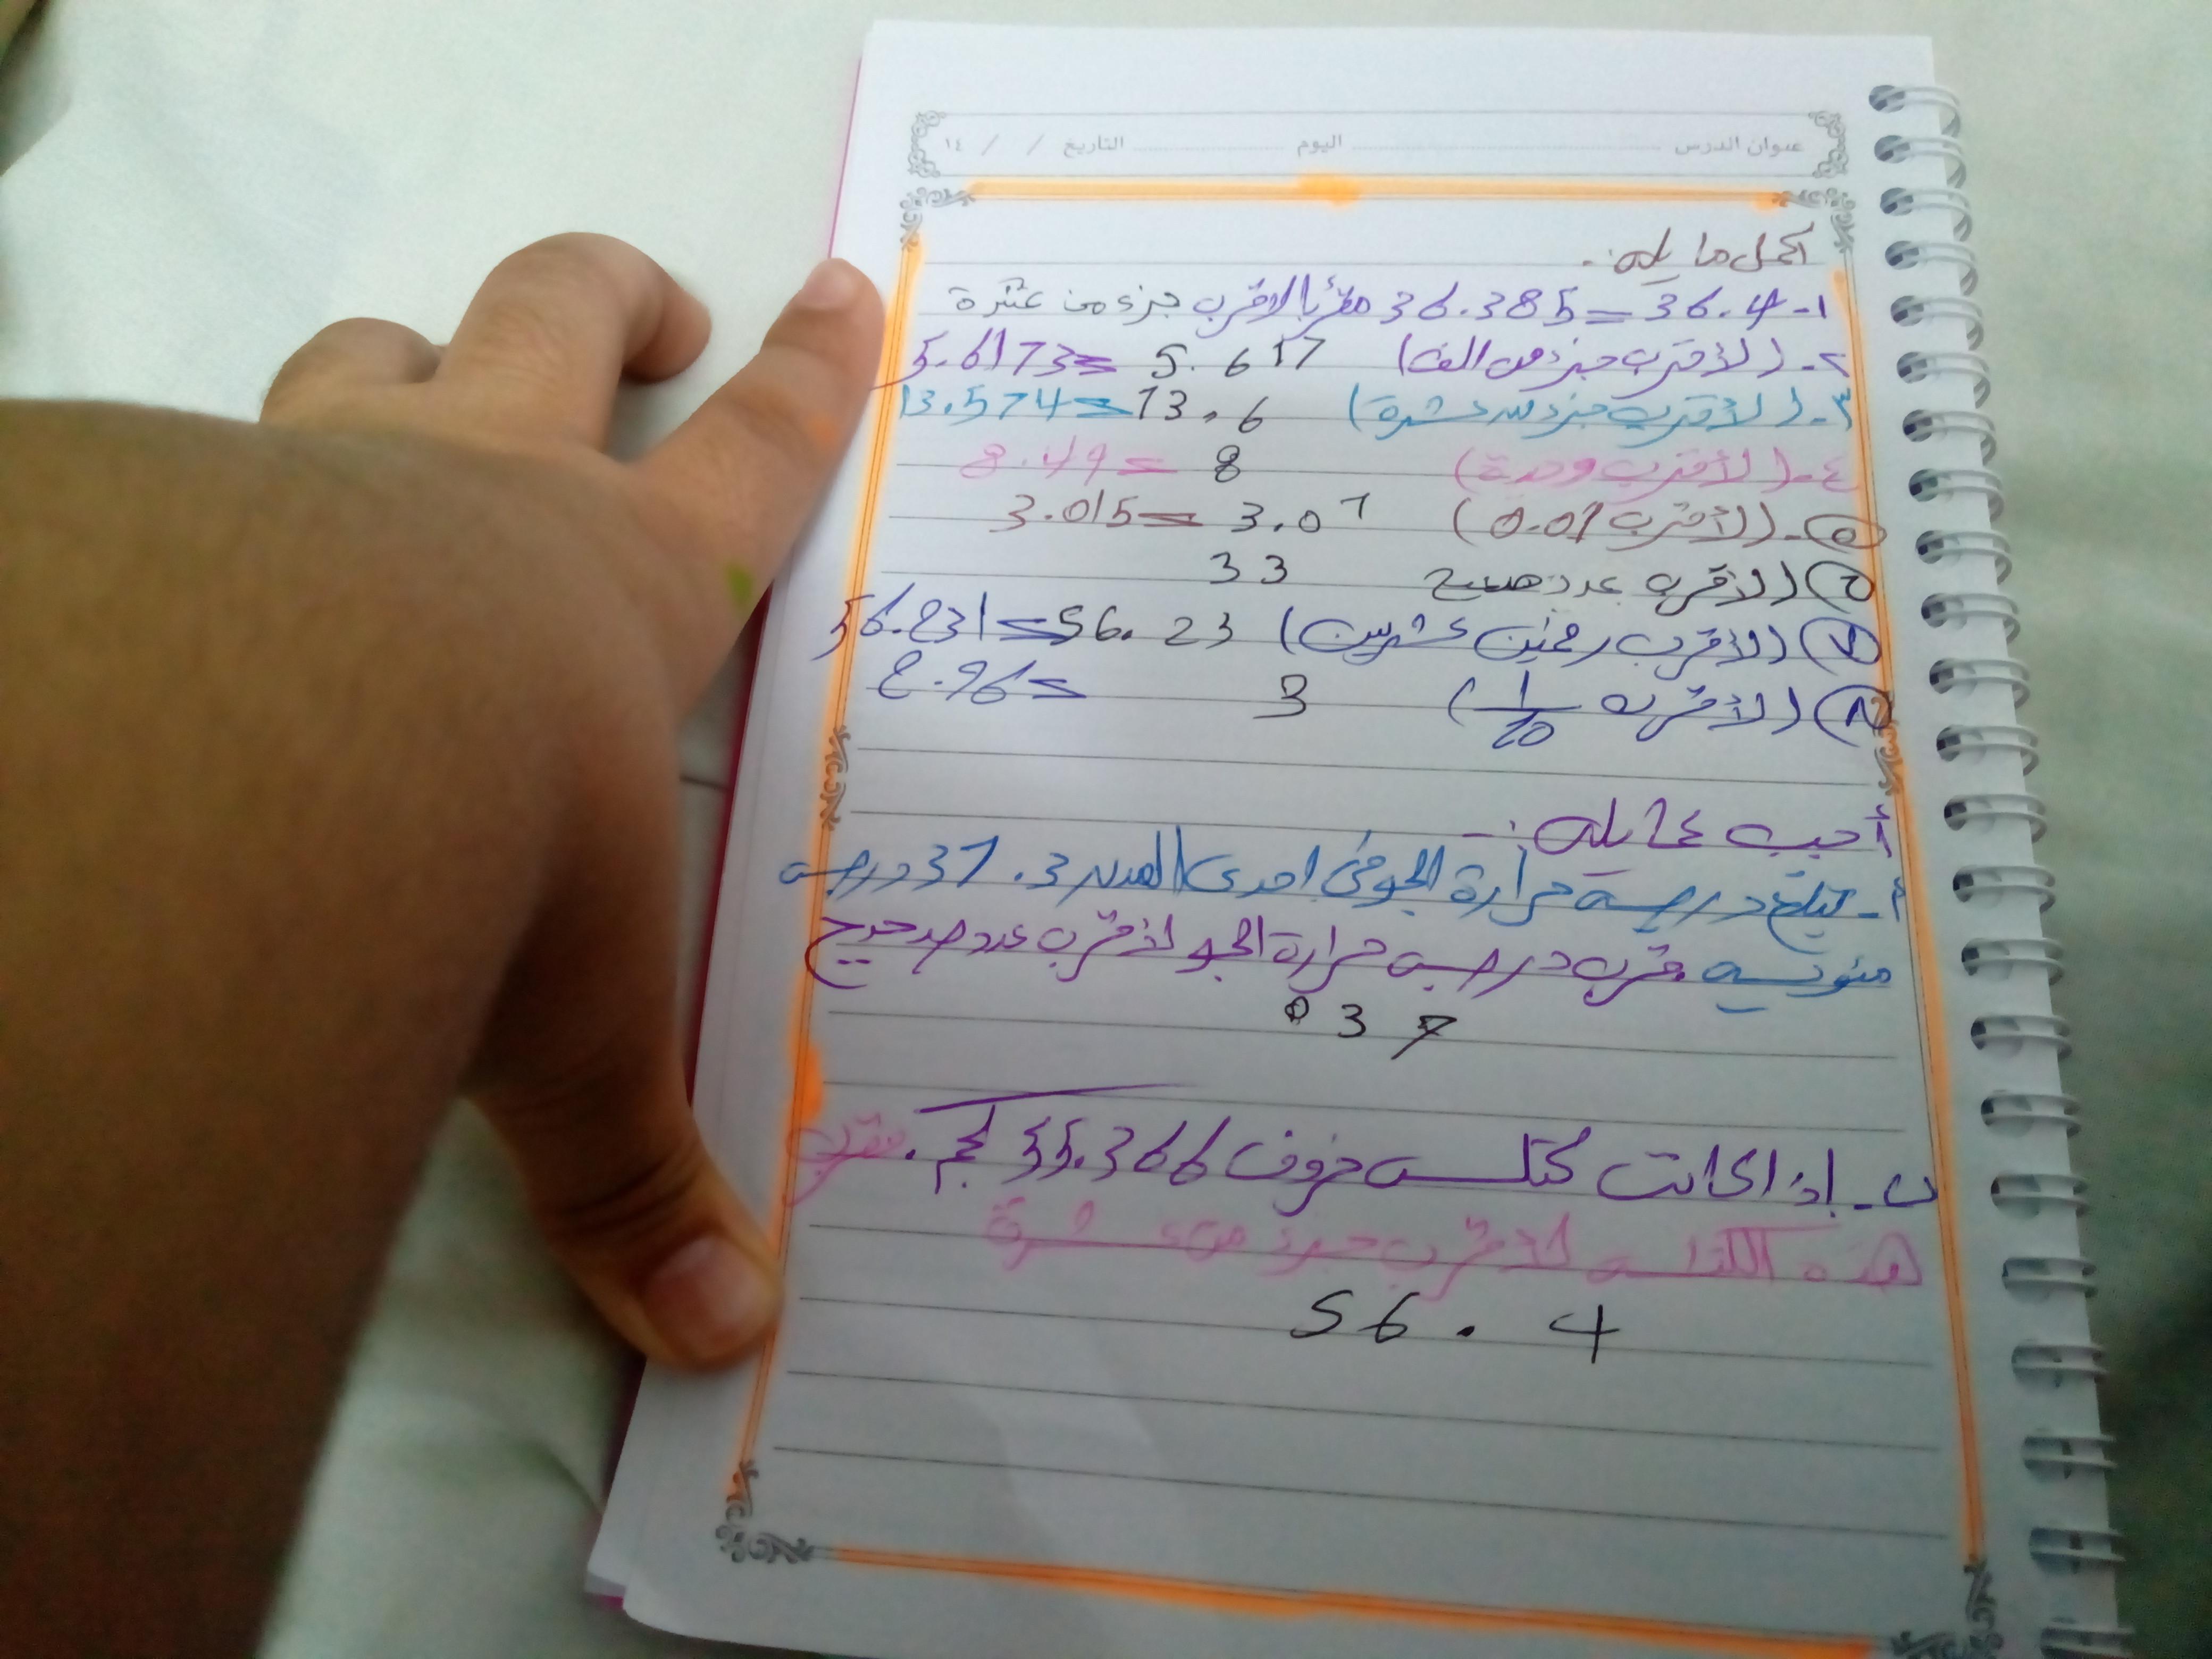 عنوان الدرس اليوم التاريخ / / ١٤
اكمل ما يلي :-
١- 36.4 = 36.385 مقربا لاقرب جزء من عشرة
٢- (لأقرب جزء من الف) 5.6173 = 5.617
٣- (لأقرب جزء من عشرة) 13.574 = 13.6
٤- (لأقرب وحدة) 8.49 = 8
٥- (لأقرب 0.01) 3.015 = 3.01
٦ (لأقرب عدد صحيح 33
٧ (لأقرب رقمين عشريين) 56.231 = 56.23
٨ (لأقرب 1/20) 2.96 = 3
أجب عما يلي :-
أ- تبلغ درجة حرارة الجو في احدى المدن 37.3 درجة
مئوية قرب درجة حرارة الجو لأقرب عدد صحيح
37
ب- إذا كانت كتلة خروف 55.366 كجم . قرب
هذه الكتلة لأقرب جزء من عشرة
56.4